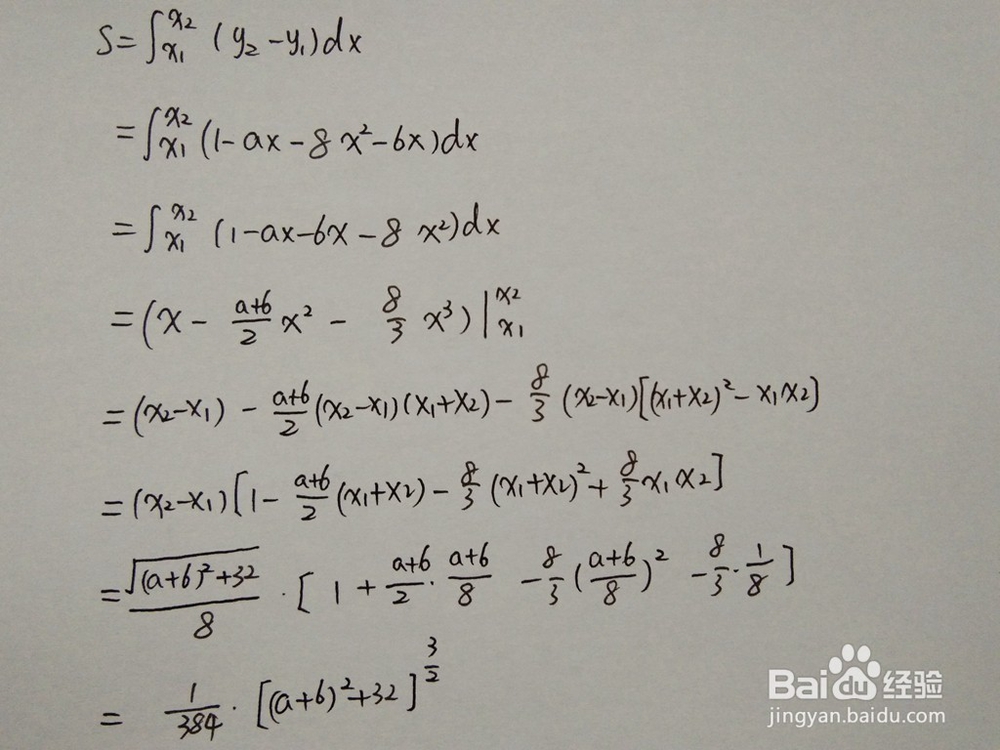 S=∫_{x1}^{x2} (y2-y1)dx
=∫_{x1}^{x2} (1-ax-8x²-6x)dx
=∫_{x1}^{x2} (1-ax-6x-8x²)dx
=(x - (a+6)/2 x² - 8/3 x³)|_{x1}^{x2}
=(x2-x1) - (a+6)/2 (x2-x1)(x1+x2) - 8/3 (x2-x1)[(x1+x2)² - x1x2]
=(x2-x1)[1 - (a+6)/2 (x1+x2) - 8/3 (x1+x2)² + 8/3 x1x2]
=√((a+6)²+32)/8 · [1 + (a+6)/2 · (a+6)/8 - 8/3 ((a+6)/8)² - 8/3 · 1/8]
= 1/384 · [(a+6)²+32]^{3/2}
Baidu经验
jingyan.baidu.com